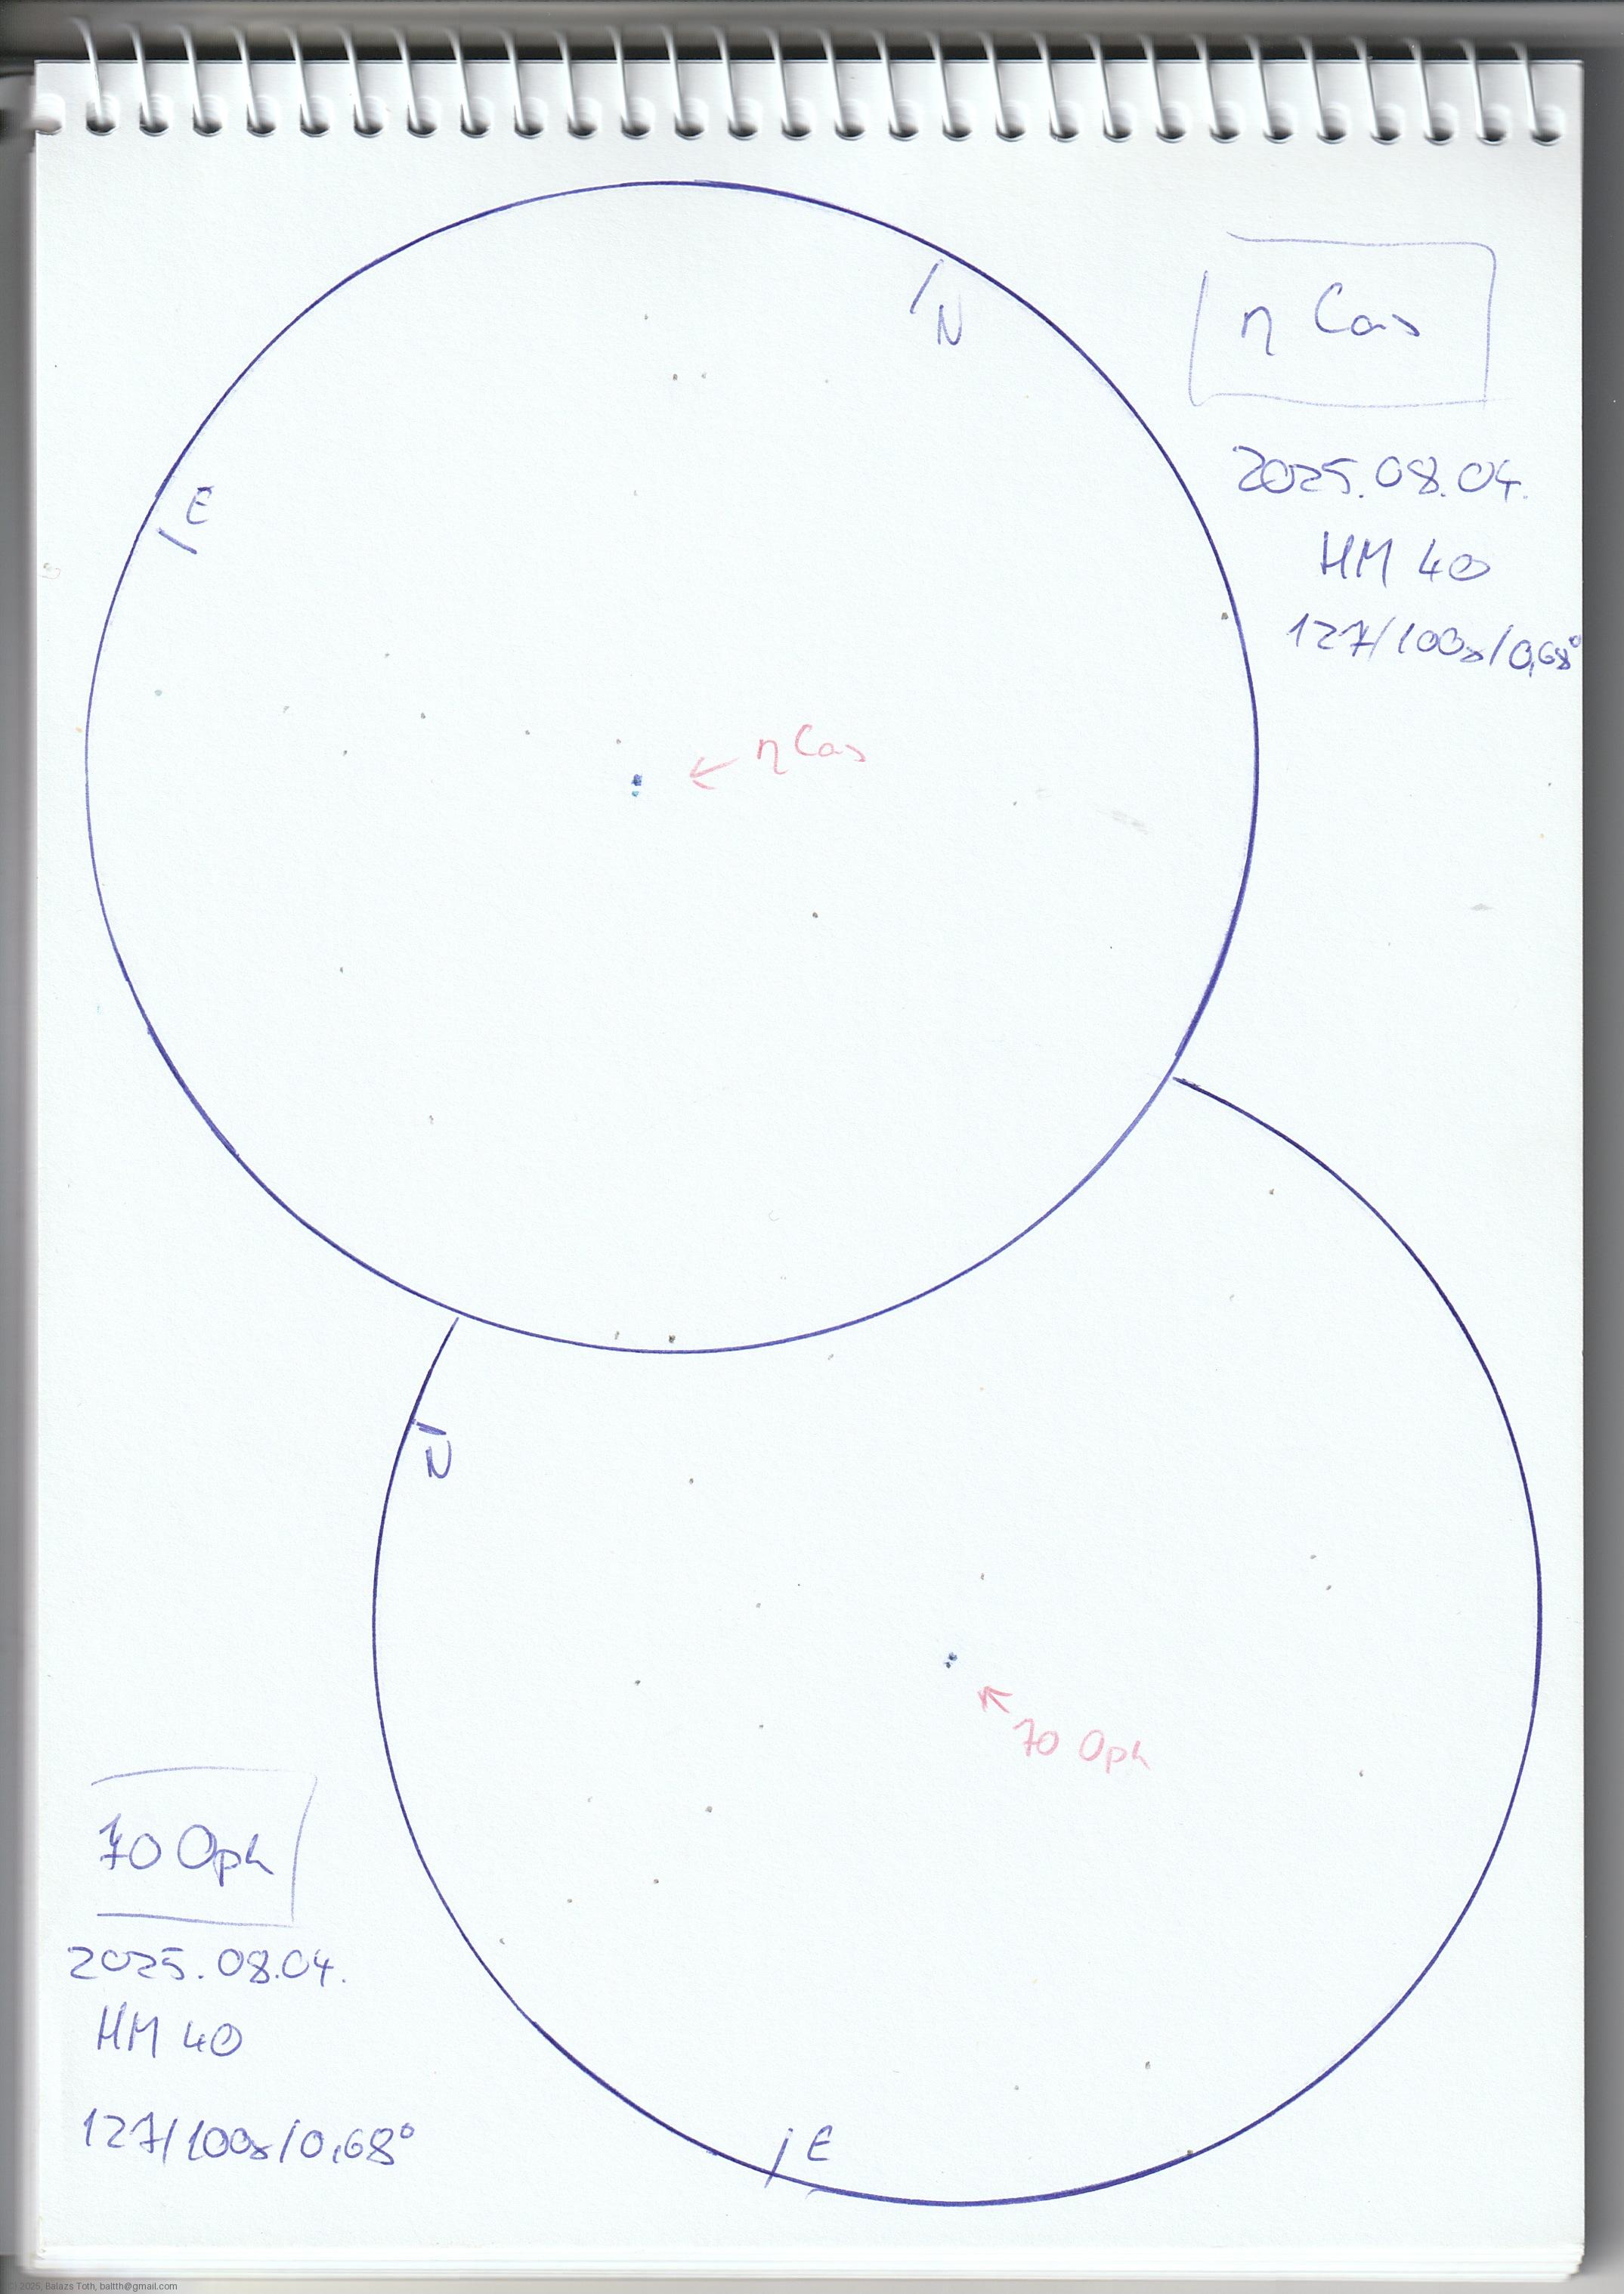 N
η Cas
2025.08.04.
E
HM 40
127/100x/0,68°
η Cas
N
70 Oph
70 Oph
2025.08.04.
HM 40
127/100x/0,68°
E
© 2025, Balazs Toth, baltth@gmail.com